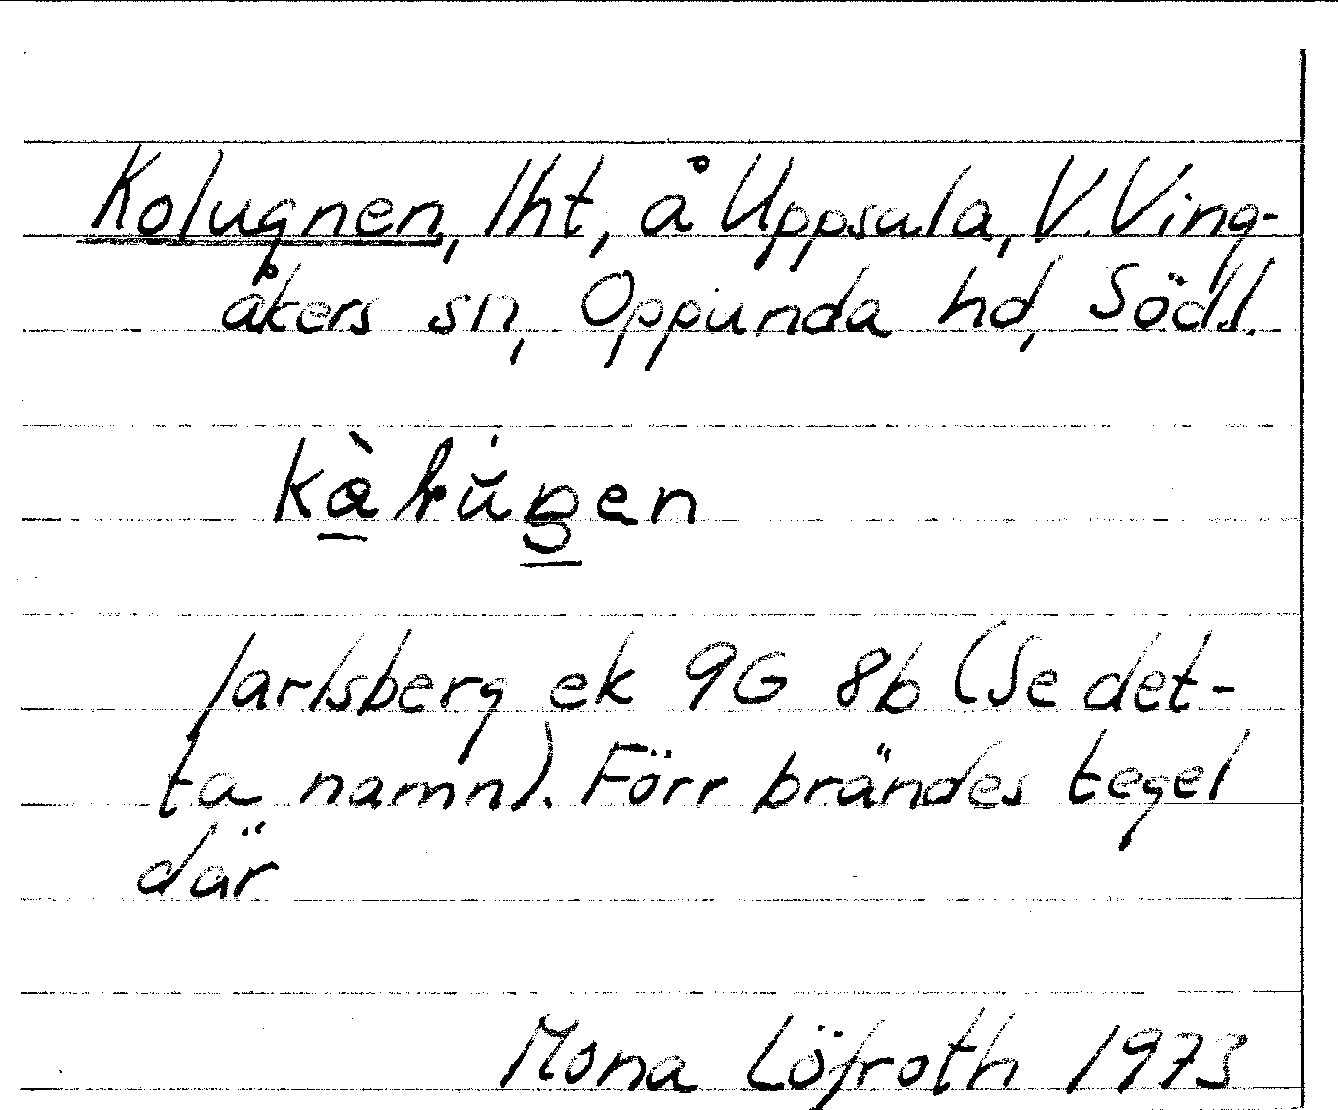 Kolugnen, lht, å Uppsala, V. Ving-
åkers sn, Oppunda hd, Södl.
Jarlsberg ek 9G 8b (Se det-
ta namn). Förr brändes tegel
där
Mona Löfroth 1973